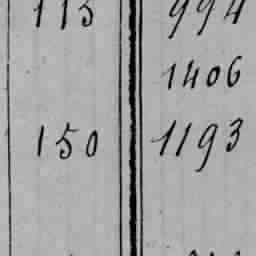 115 994
1406
150 1193